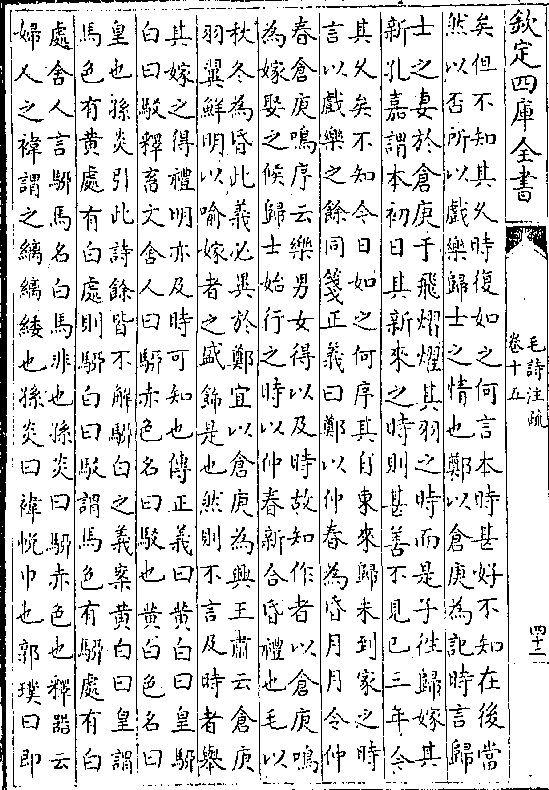 欽定四庫全書
毛詩注疏
卷十五
四十二
矣但不知其久時復如之何言本時甚好不知在後當
然以否所以戲樂歸士之情也鄭以倉庚為記時言歸
士之妻於倉庚于飛熠燿其羽之時而是子徃歸嫁其
新孔嘉謂本初日其新來之時則甚善不見已三年今
其久矣不知今日如之何序其自東來歸未到家之時
言以戲樂之餘同箋正義曰鄭以仲春為昏月月令仲
春倉庚鳴序云樂男女得以及時故知作者以倉庚鳴
為嫁娶之候歸士始行之時以仲春新合昏禮也毛以
秋冬為昏此義必異於鄭宜以倉庚為興王肅云倉庚
羽翼鮮明以喻嫁者之盛飾是也然則不言及時者舉
其嫁之得禮明亦及時可知也傳正義曰黃白曰皇騵
白曰駁釋畜文舍人曰騵赤色名曰駁也黃白色名曰
皇也孫炎引此詩餘皆不解騵白之義案黃白曰皇謂
馬色有黃處有白處則騵白曰駁謂馬色有騵處有白
處舍人言騵馬名白馬非也孫炎曰騵赤色也釋器云
婦人之褘謂之縭縭緌也孫炎曰褘帨巾也郭璞曰即